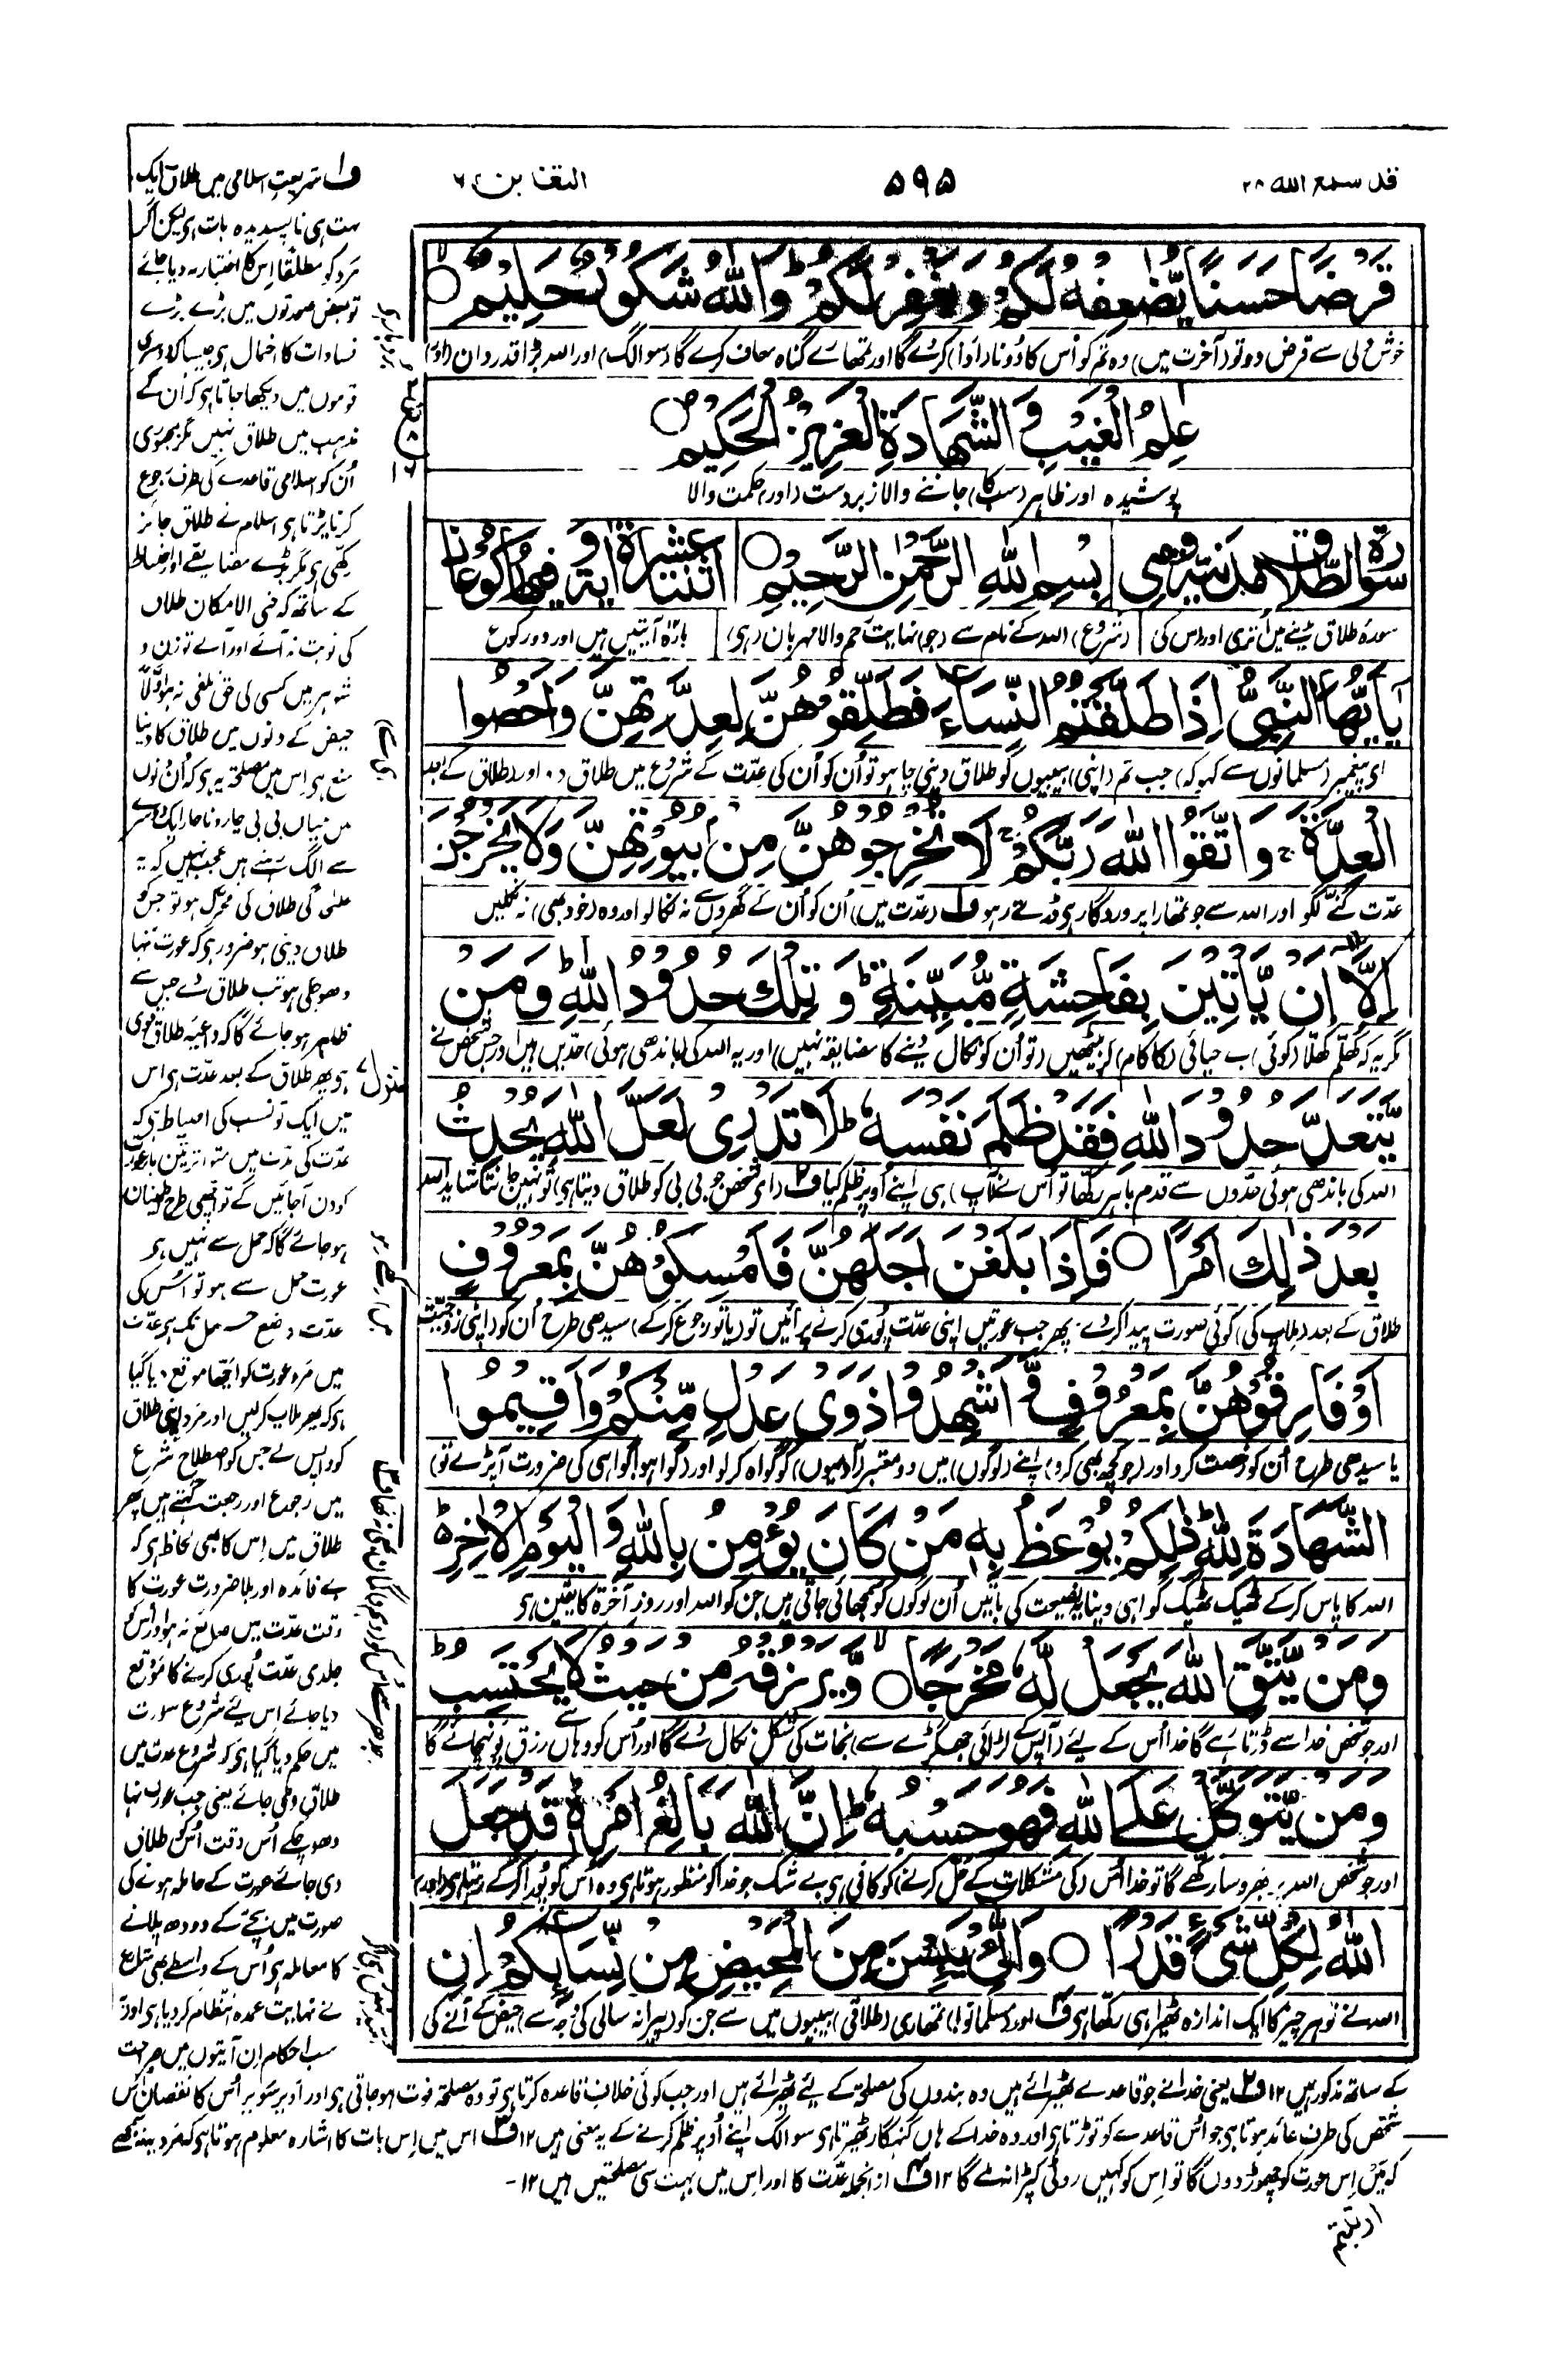 قد سمع الله ٢٨
٥٩٥
التغابن ٦٤
قَرْضًا حَسَنًا يُّضٰعِفْهُ لَكُمْ وَيَغْفِرْ لَكُمْ ؕ وَاللّٰهُ شَكُوْرٌ حَلِيْمٌ ○
خوش دلی سے قرض دو تو (آخرت میں) وہ تم کو اُس کا دُونا (ادا) کرے گا اور تمھارے گناہ معاف کرے گا (سو الگ) اور اللہ بڑا قدردان (اور)
عٰلِمُ الْغَيْبِ وَ الشَّهَادَةِ الْعَزِيْزُ الْحَكِيْمُ ○
پوشیدہ اور ظاہر (سب کا) جاننے والا زبردست (اور) حکمت والا
سورة الطلاق مدنية وهي
بِسْمِ اللّٰهِ الرَّحْمٰنِ الرَّحِيْمِ ○
اثنتا عشرة اية و فيها ركوعان
سورۂ طلاق مدینے میں اُتری اور اس کی
(شروع) اللہ کے نام سے (جو) نہایت رحم والا مہربان (ہے)
بارہ آیتیں ہیں اور دو رکوع
يٰۤاَيُّهَا النَّبِيُّ اِذَا طَلَّقْتُمُ النِّسَآءَ فَطَلِّقُوْهُنَّ لِعِدَّتِهِنَّ وَاَحْصُوا
ای پیغمبر (مسلمانوں سے کہو کہ) جب تم (اپنی) بیبیوں کو طلاق دینی چاہو تو اُن کو اُن کی عدّت کے شروع میں طلاق دو اور (طلاق کے بعد
الْعِدَّةَ ۚ وَ اتَّقُوا اللّٰهَ رَبَّكُمْ ۚ لَا تُخْرِجُوْهُنَّ مِنْۢ بُيُوْتِهِنَّ وَلَا يَخْرُجْنَ
عدّت گننے لگو اور اللہ سے جو تمھارا پروردگار ہی ڈرتے رہو ف١ (عدّت میں) اُن کو اُن کے گھروں سے نہ نکالو اور وہ (خود بھی) نہ نکلیں
اِلَّاۤ اِنْ يَّاْتِيْنَ بِفَاحِشَةٍ مُّبَيِّنَةٍ ؕ وَ تِلْكَ حُدُوْدُ اللّٰهِ ؕ وَ مَنْ
مگر یہ کہ کھلّم کھلّا (کوئی) بے حیائی (کا کام) کر بیٹھیں (تو اُن کو نکال دینے کا مضایقہ نہیں) اور یہ اللہ کی (باندھی ہوئی) حدّیں ہیں اور جس شخص نے
يَّتَعَدَّ حُدُوْدَ اللّٰهِ فَقَدْ ظَلَمَ نَفْسَهٗ ؕ لَا تَدْرِيْ لَعَلَّ اللّٰهَ يُحْدِثُ
اللہ کی باندھی ہوئی حدّوں سے قدم باہر رکھا تو اُس نے (آپ) ہی اپنے اُوپر ظلم کیا ف٢ (ای شخص جو بی بی کو طلاق دیتا ہی) تو نہیں جانتا شاید اللہ
بَعْدَ ذٰلِكَ اَمْرًا ○ فَاِذَا بَلَغْنَ اَجَلَهُنَّ فَاَمْسِكُوْهُنَّ بِمَعْرُوْفٍ
طلاق کے بعد (ملاپ کی) کوئی صورت پیدا کر دے۔ پھر جب عورتیں اپنی عدّت پُوری کرنے پر آئیں تو (یا تو رجوع کر کے) سیدھی طرح اُن کو (اپنی زوجیّت
اَوْ فَارِقُوْهُنَّ بِمَعْرُوْفٍ وَّ اَشْهِدُوْا ذَوَيْ عَدْلٍ مِّنْكُمْ وَ اَقِيْمُوا
یا سیدھی طرح اُن کو رخصت کرو اور (جو کچھ بھی کرو) اپنے (لوگوں) میں دو معتبر (آدمیوں) کو گواہ کر لو اور (گواہو! گواہی کی ضرورت آپڑے تو)
الشَّهَادَةَ لِلّٰهِ ؕ ذٰلِكُمْ يُوْعَظُ بِهٖ مَنْ كَانَ يُؤْمِنُ بِاللّٰهِ وَ الْيَوْمِ الْاٰخِرِ ؕ
اللہ کا پاس کر کے ٹھیک ٹھیک گواہی دینا یہ نصیحت کی باتیں اُن لوگوں کو سمجھائی جاتی ہیں جن کو اللہ اور روز آخرۃ کا یقین ہی
وَ مَنْ يَّتَّقِ اللّٰهَ يَجْعَلْ لَّهٗ مَخْرَجًا ○ وَّ يَرْزُقْهُ مِنْ حَيْثُ لَا يَحْتَسِبُ ؕ
اور جو شخص خدا سے ڈرتا رہے گا خدا اُس کے لیے (آپس کے لڑائی جھگڑے سے) نجات کی شکل نکال دے گا اور اُس کو وہاں سے رزق پُہنچائے گا
وَ مَنْ يَّتَوَكَّلْ عَلَى اللّٰهِ فَهُوَ حَسْبُهٗ ؕ اِنَّ اللّٰهَ بَالِغُ اَمْرِهٖ ؕ قَدْ جَعَلَ
اور جو شخص اللہ پر بھروسا رکھے گا تو خدا اُس (کی مشکلات کے حل کرنے) کو کافی ہی بے شک جو خدا کو منظور ہوتا ہی وہ اُس کو پُورا کر کے رہتا ہی (اور)
اللّٰهُ لِكُلِّ شَيْءٍ قَدْرًا ○ وَ الّٰٓـِٔيْ يَئِسْنَ مِنَ الْمَحِيْضِ مِنْ نِّسَآئِكُمْ اِنِ
اللہ نے تو ہر چیز کا ایک اندازہ ٹھیرا ہی رکھا ہی ف٤ اور (مسلمانو!) تمھاری (طلاقی) بیبیوں میں سے جن کو (پیرانہ سالی کی وجہ سے) حیض کے آنے کی
ف١ شریعت اسلامی میں طلاق ایک
بہت ہی ناپسندیدہ بات ہی لیکن اگر
مرد کو مطلقًا اِس کا اختیار نہ دیا جائے
تو بعض صورتوں میں بڑے بڑے
فسادات کا احتمال ہی جیسا کہ دوسری
قوموں میں دیکھا جاتا ہی کہ اُن کے
مذہب میں طلاق نہیں مگر بمجبوری
اُن کو اسلامی قاعدے کی طرف رجوع
کرنا پڑتا ہی اسلام نے طلاق جائز
رکھی ہی مگر بڑے مضایقے اور احتیاط
کے ساتھ کہ حتی الامکان طلاق
کی نوبت نہ آئے اور آئے تو زن و
شوہر میں کسی کی حق تلفی نہ ہو اوّلًا
حیض کے دنوں میں طلاق کا دینا
منع ہی اس میں مصلحۃ یہ ہی کہ اُن دنوں
میں میاں بی بی چار و ناچار ایک دوسرے
سے الگ رہتے ہیں عجب نہیں کہ یہ
علٰحدگی طلاق کی محرک ہو تو جس کو
طلاق دینی ہو ضرور ہی کہ عورت نہا
دھو چکی ہو تب طلاق دے جس سے
ظاہر ہو جائے گا کہ داعیہ طلاق قوی
ہو پھر طلاق کے بعد عدّت ہی اس
میں ایک تو نسب کی احتیاط ہی کہ
عدّت کی مدّت میں متواتر تین بار عورت
کو دن آجائیں گے تو اچھی طرح اطمینان
ہو جائے گا کہ حمل سے نہیں ہی
عورت حمل سے ہو تو اُس کی
عدّت وضع حمل تک ہی عدّت
میں مرد عورت کو اچھا موقع دیا گیا
ہی کہ پھر ملاپ کر لیں اور مرد اپنی طلاق
کو واپس لے جس کو اصطلاح شرع
میں رجوع اور رجعت کہتے ہیں پھر
طلاق میں اِس کا بھی لحاظ ہی کہ
بے فائدہ اور بلا ضرورت عورت کا
وقت عدّت میں ضائع نہ ہو اور اُس کو
جلدی عدّت پُوری کرنے کا موقع
دیا جائے اس لیے شروع سورت
میں حکم دیا گیا ہی کہ شروع عدت میں
طلاق دی جائے یعنی جب عورت نہا
دھو چکے اُس وقت اُس کو طلاق
دی جائے عورت کے حاملہ ہونے کی
صورت میں بچے کے دودھ پلانے
کا معاملہ ہی اُس کے واسطے بھی شارع
نے نہایت عمدہ انتظام کر دیا ہی اور یہ
سب احکام اِن آیتوں میں صراحت
کے ساتھ مذکور ہیں ١٢ ف٢ یعنی خدا نے جو قاعدے ٹھیرائے ہیں وہ بندوں کی مصلحۃ کے لیے ٹھیرائے ہیں اور جب کوئی خلاف قاعدہ کرتا ہی تو وہ مصلحۃ فوت ہو جاتی ہی اور اُس کا نقصان اُس
شخص کی طرف عائد ہوتا ہی جو اُس قاعدے کو توڑتا ہی اور وہ خدا کے ہاں گنہگار ٹھیرتا ہی سو الگ اپنے اُوپر ظلم کرنے کے یہ معنی ہیں ١٢ ف٣ اس میں اِس بات کا اشارہ معلوم ہوتا ہی کہ مرد یہ نہ سمجھے
کہ مَیں اِس عورت کو چھوڑ دوں گا تو اِس کو کہیں روٹی کپڑا نہ ملے گا ١٢ ف٤ ازانجملہ عدّت کا اور اس میں بہت سی مصلحتیں ہیں ١٢-
ارتبتم